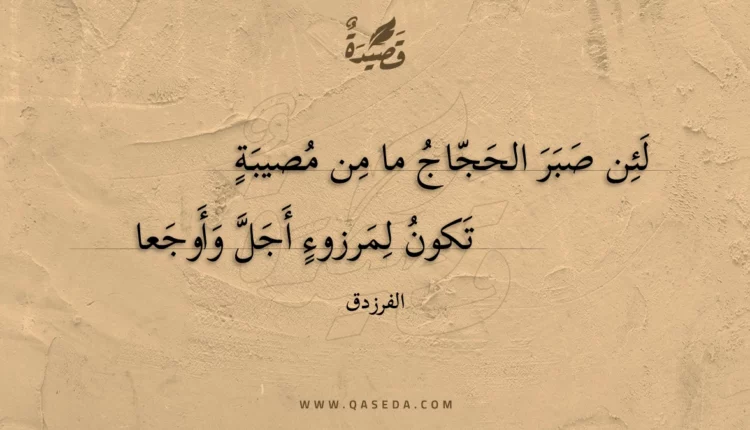 قَصِيدَةٌ
لَئِن صَبَرَ الحَجّاجُ ما مِن مُصيبَةٍ
تَكونُ لِمَرزوءٍ أَجَلَّ وَأَوجَعا
الفرزدق
WWW.QASEDA.COM